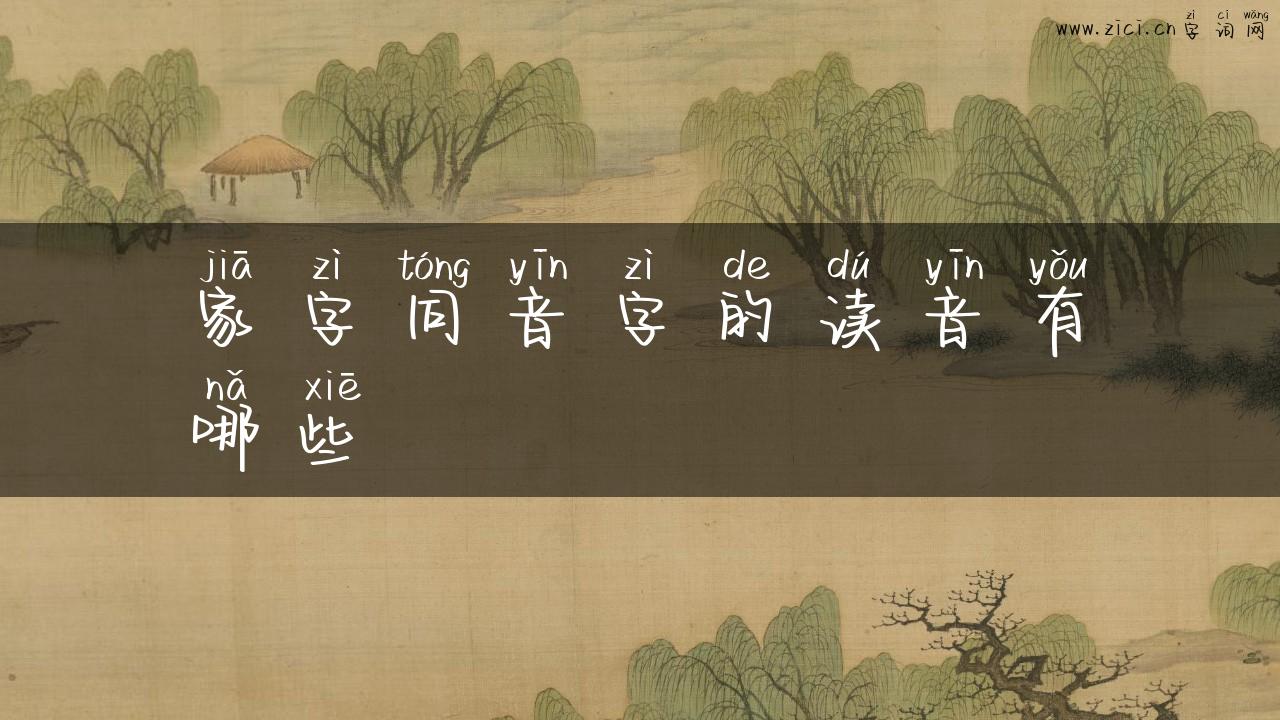 zì cí wǎng
www.zici.cn 字 词 网
jiā zì tóng yīn zì de dú yīn yǒu
家 字 同 音 字 的 读 音 有
nǎ xiē
哪 些